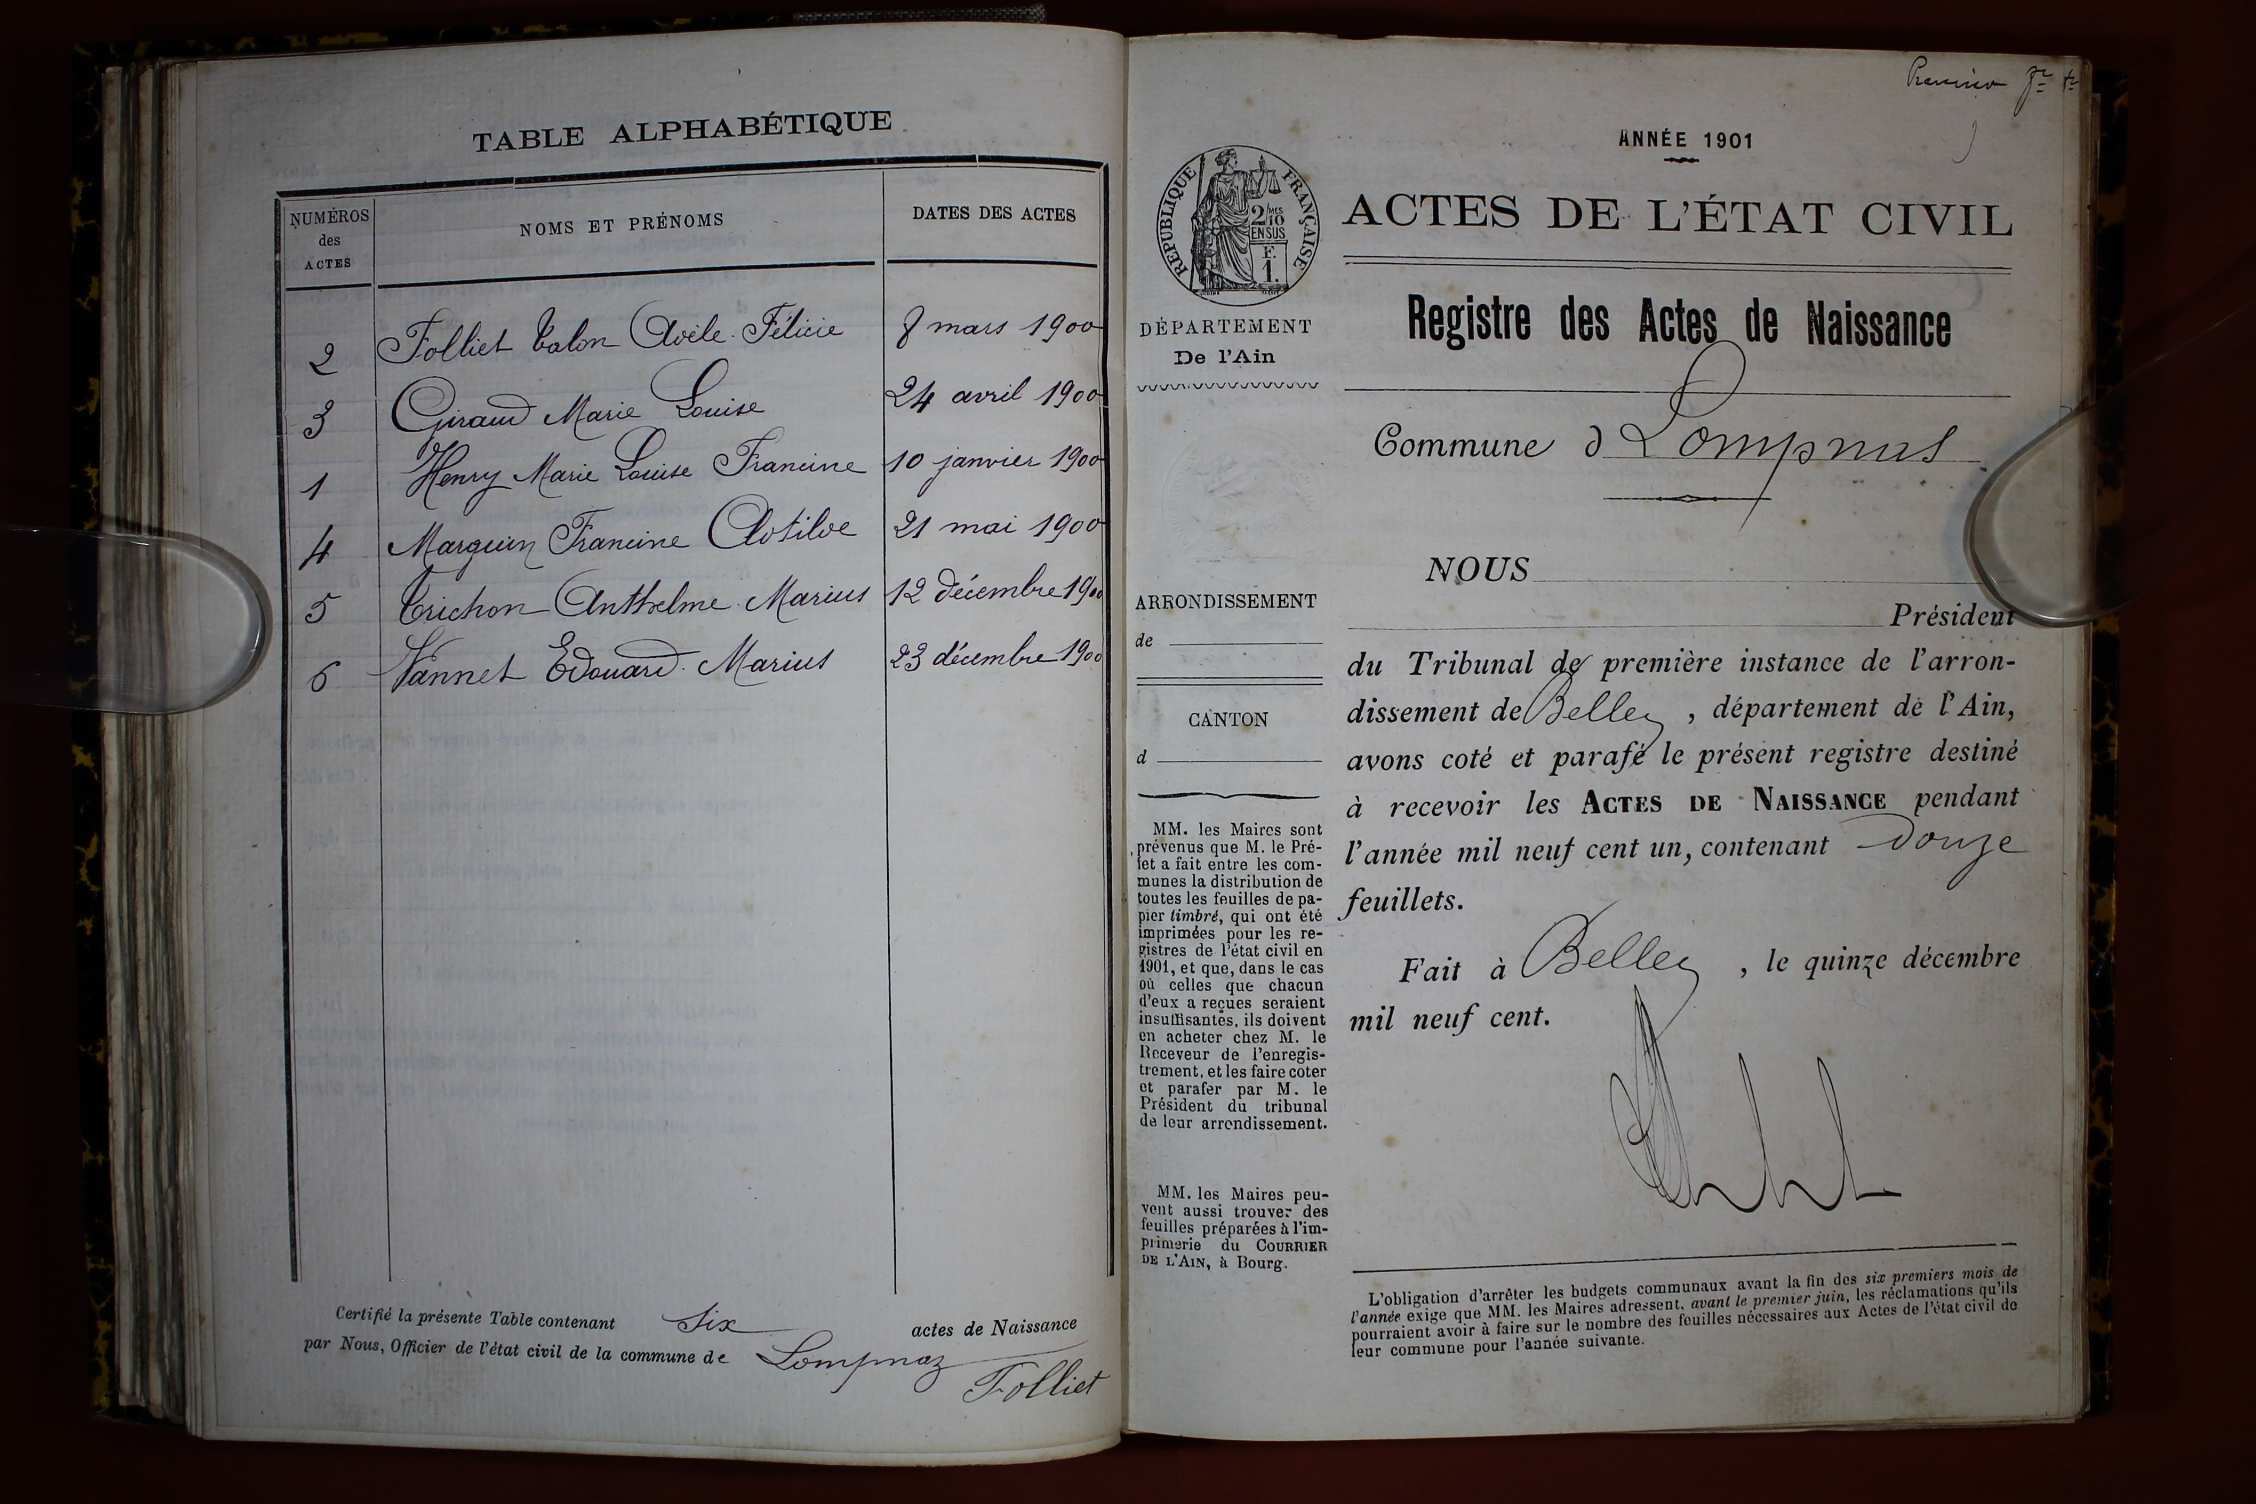 TABLE ALPHABÉTIQUE
NUMÉROS
des
ACTES
NOMS ET PRÉNOMS
DATES DES ACTES
2 Folliet Talon Adèle Félicie 8 mars 1900
3 Giraud Marie Louise 24 avril 1900
1 Henry Marie Louise Francine 10 janvier 1900
4 Marguin Francine Clotilde 21 mai 1900
5 Trichon Anthelme Marius 12 décembre 1900
6 Vannet Edouard Marius 23 décembre 1900
Certifié la présente Table contenant six actes de Naissance
par Nous, Officier de l'état civil de la commune de Lompnaz
Folliet
ANNÉE 1901
RÉPUBLIQUE FRANÇAISE
2/10 MES
EN SUS
F.
1.
ACTES DE L'ÉTAT CIVIL
DÉPARTEMENT
De l'Ain
Registre des Actes de Naissance
Commune d Lompnas
ARRONDISSEMENT
de
CANTON
d
MM. les Maires sont
prévenus que M. le Pré-
fet a fait entre les com-
munes la distribution de
toutes les feuilles de pa-
pier timbré, qui ont été
imprimées pour les re-
gistres de l'état civil en
1901, et que, dans le cas
où celles que chacun
d'eux a reçues seraient
insuffisantes, ils doivent
en acheter chez M. le
Receveur de l'enregis-
trement, et les faire coter
et parafer par M. le
Président du tribunal
de leur arrondissement.
MM. les Maires peu-
vent aussi trouver des
feuilles préparées à l'im-
primerie du COURRIER
DE L'AIN, à Bourg.
NOUS
Président
du Tribunal de première instance de l'arron-
dissement de Belley, département de l'Ain,
avons coté et parafé le présent registre destiné
à recevoir les ACTES DE NAISSANCE pendant
l'année mil neuf cent un, contenant douze
feuillets.
Fait à Belley, le quinze décembre
mil neuf cent.
L'obligation d'arrêter les budgets communaux avant la fin des six premiers mois de
l'année exige que MM. les Maires adressent, avant le premier juin, les réclamations qu'ils
pourraient avoir à faire sur le nombre des feuilles nécessaires aux Actes de l'état civil de
leur commune pour l'année suivante.